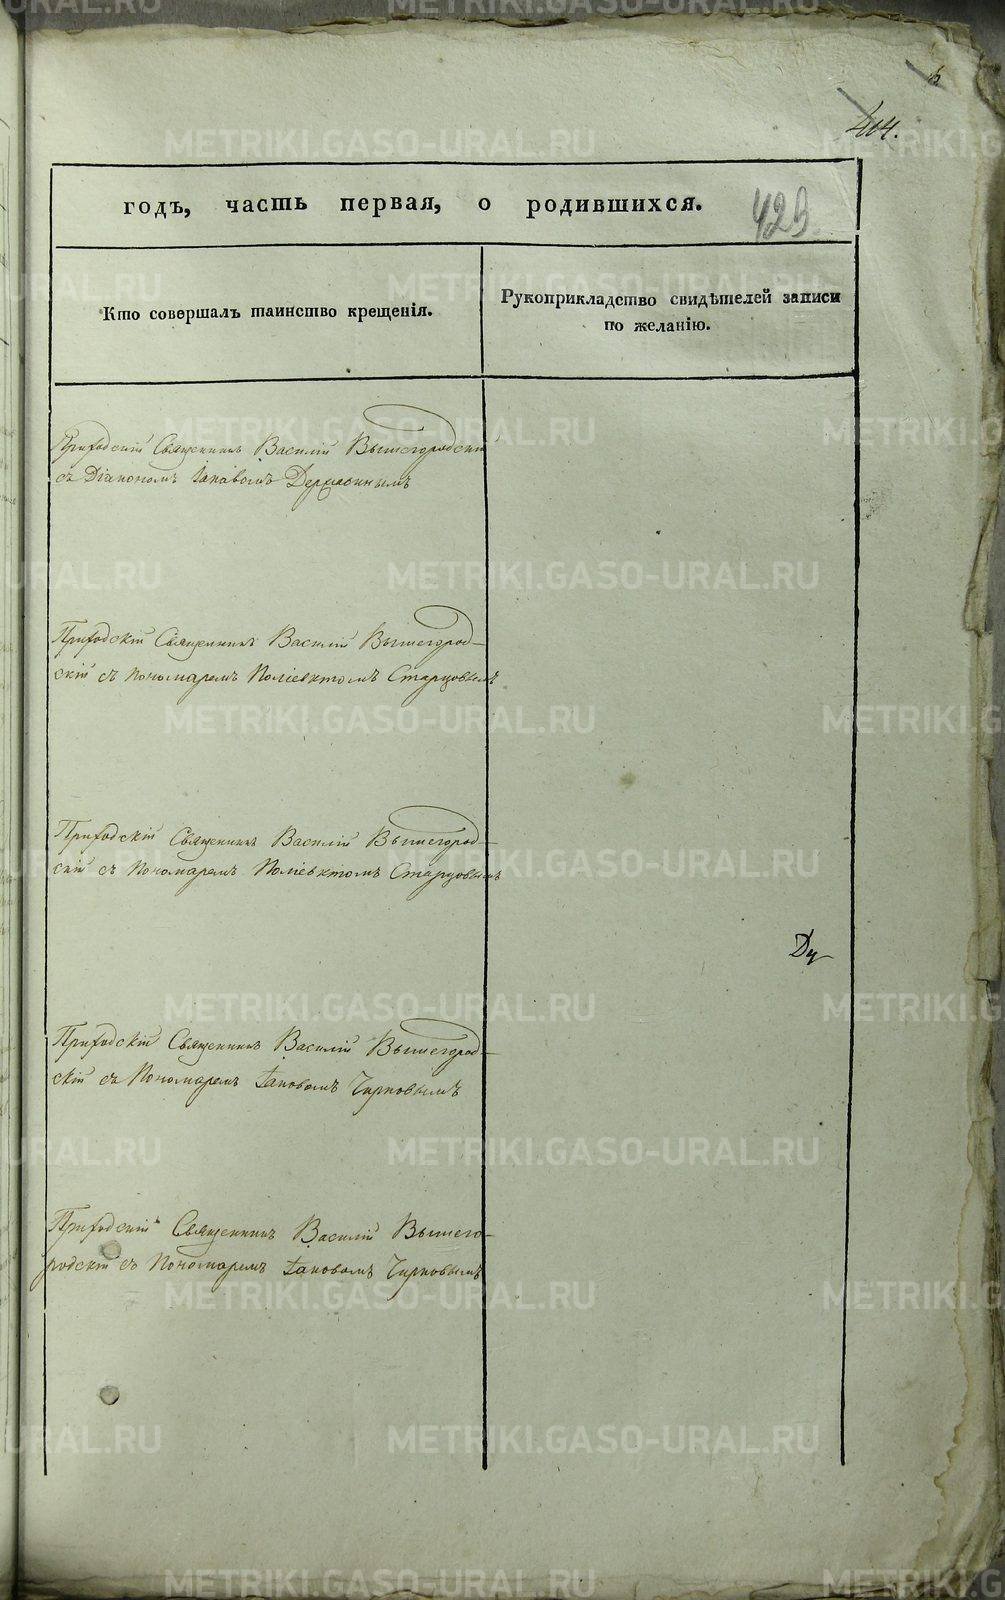 6
404.
годъ, часть первая, о родившихся.
429
Кто совершалъ таинство крещенія.
Рукоприкладство свидѣтелей записи
по желанію.
Приходскій Священникъ Василій Вышегородскій
съ Діакономъ Іаковомъ Державинымъ
Приходскій Священникъ Василій Вышегород-
скій съ Пономаремъ Поліевктомъ Старцовымъ
Приходскій Священникъ Василій Вышегород-
скій съ Пономаремъ Поліевктомъ Старцовымъ
Ду
Приходскій Священникъ Василій Вышегород-
скій съ Пономаремъ Іаковомъ Чирковымъ
Приходскій Священникъ Василій Вышего-
родскій съ Пономаремъ Іаковомъ Чирковымъ
METRIKI.GASO-URAL.RU